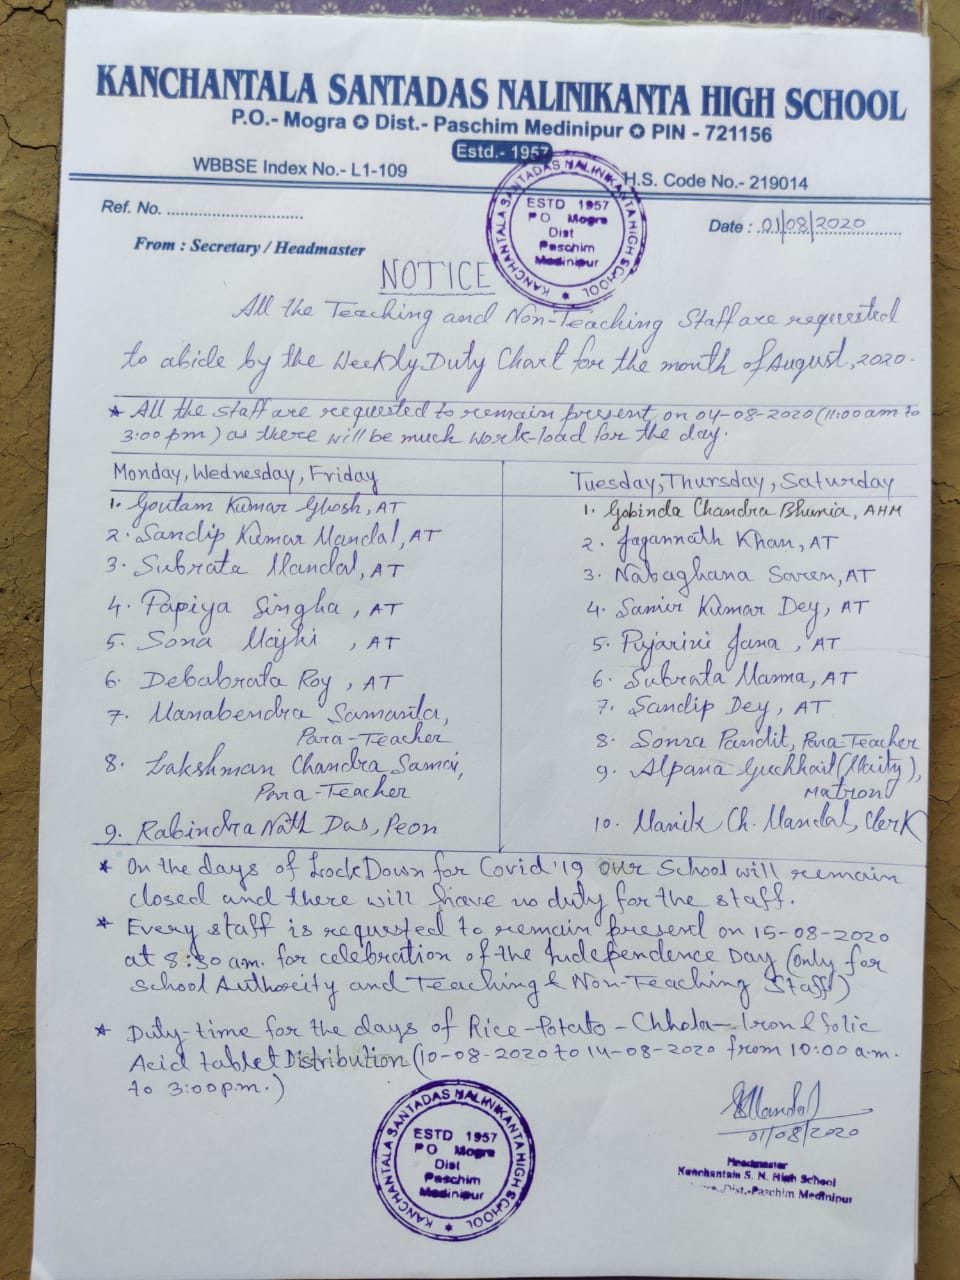 KANCHANTALA SANTADAS NALINIKANTA HIGH SCHOOL
P.O.- Mogra ✪ Dist.- Paschim Medinipur ✪ PIN - 721156
Estd.- 1957
WBBSE Index No.- L1-109
H.S. Code No.- 219014
KANCHANTALA SANTADAS NALINIKANTA HIGH SCHOOL
ESTD 1957
PO Mogra
Dist
Paschim
Medinipur
Ref. No. ..............................
Date : 01/08/2020
From : Secretary / Headmaster
NOTICE
All the Teaching and Non-Teaching Staff are requested
to abide by the Weekly Duty Chart for the month of August, 2020.
* All the staff are requested to remain present on 04-08-2020 (11:00 am to
3:00 pm) as there will be much work-load for the day.
Monday, Wednesday, Friday
1. Goutam Kumar Ghosh, AT
2. Sandip Kumar Mandal, AT
3. Subrata Mandal, AT
4. Papiya Singha, AT
5. Sona Majhi, AT
6. Debabrata Roy, AT
7. Manabendra Samanta,
Para-Teacher
8. Lakshman Chandra Samai,
Para-Teacher
9. Rabindra Nath Das, Peon
Tuesday, Thursday, Saturday
1. Gobinda Chandra Bhunia, AHM
2. Jagannath Khan, AT
3. Nabaghana Saren, AT
4. Samir Kumar Dey, AT
5. Pujarini Jana, AT
6. Subrata Manna, AT
7. Sandip Dey, AT
8. Sonra Pandit, Para-Teacher
9. Alpana Guchhait (Maity),
Matron
10. Manik Ch. Mandal, Clerk
* On the days of LockDown for Covid'19 our School will remain
closed and there will have no duty for the staff.
* Every staff is requested to remain present on 15-08-2020
at 8:30 am. for celebration of the Independence Day (only for
School Authority and Teaching & Non-Teaching Staff)
* Duty-time for the days of Rice-Potato-Chhola-Iron & Folic
Acid tablet Distribution (10-08-2020 to 14-08-2020 from 10:00 a.m.
to 3:00 p.m.)
KANCHANTALA SANTADAS NALINIKANTA HIGH SCHOOL
ESTD 1957
PO Mogra
Dist
Paschim
Medinipur
01/08/2020
Headmaster
Kanchantala S. N. High School
Dist.-Paschim Medinipur